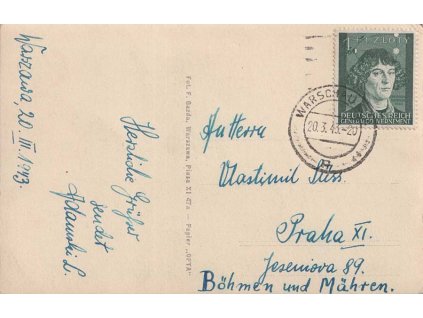 Warszawa, 20. III 1943.
Herzliche Grüße
sendet
Adamski L.
Fot. F. Gazda, Warszawa, Piusa XI
An Herrn
Vlastimil
Praha XI.
Jeseniova 89.
Böhmen und Mähren.
1 ZŁOTY
DEUTSCHES REICH
GENERALGOUVERNEMENT
WARSCHAU
20.3.43.-20